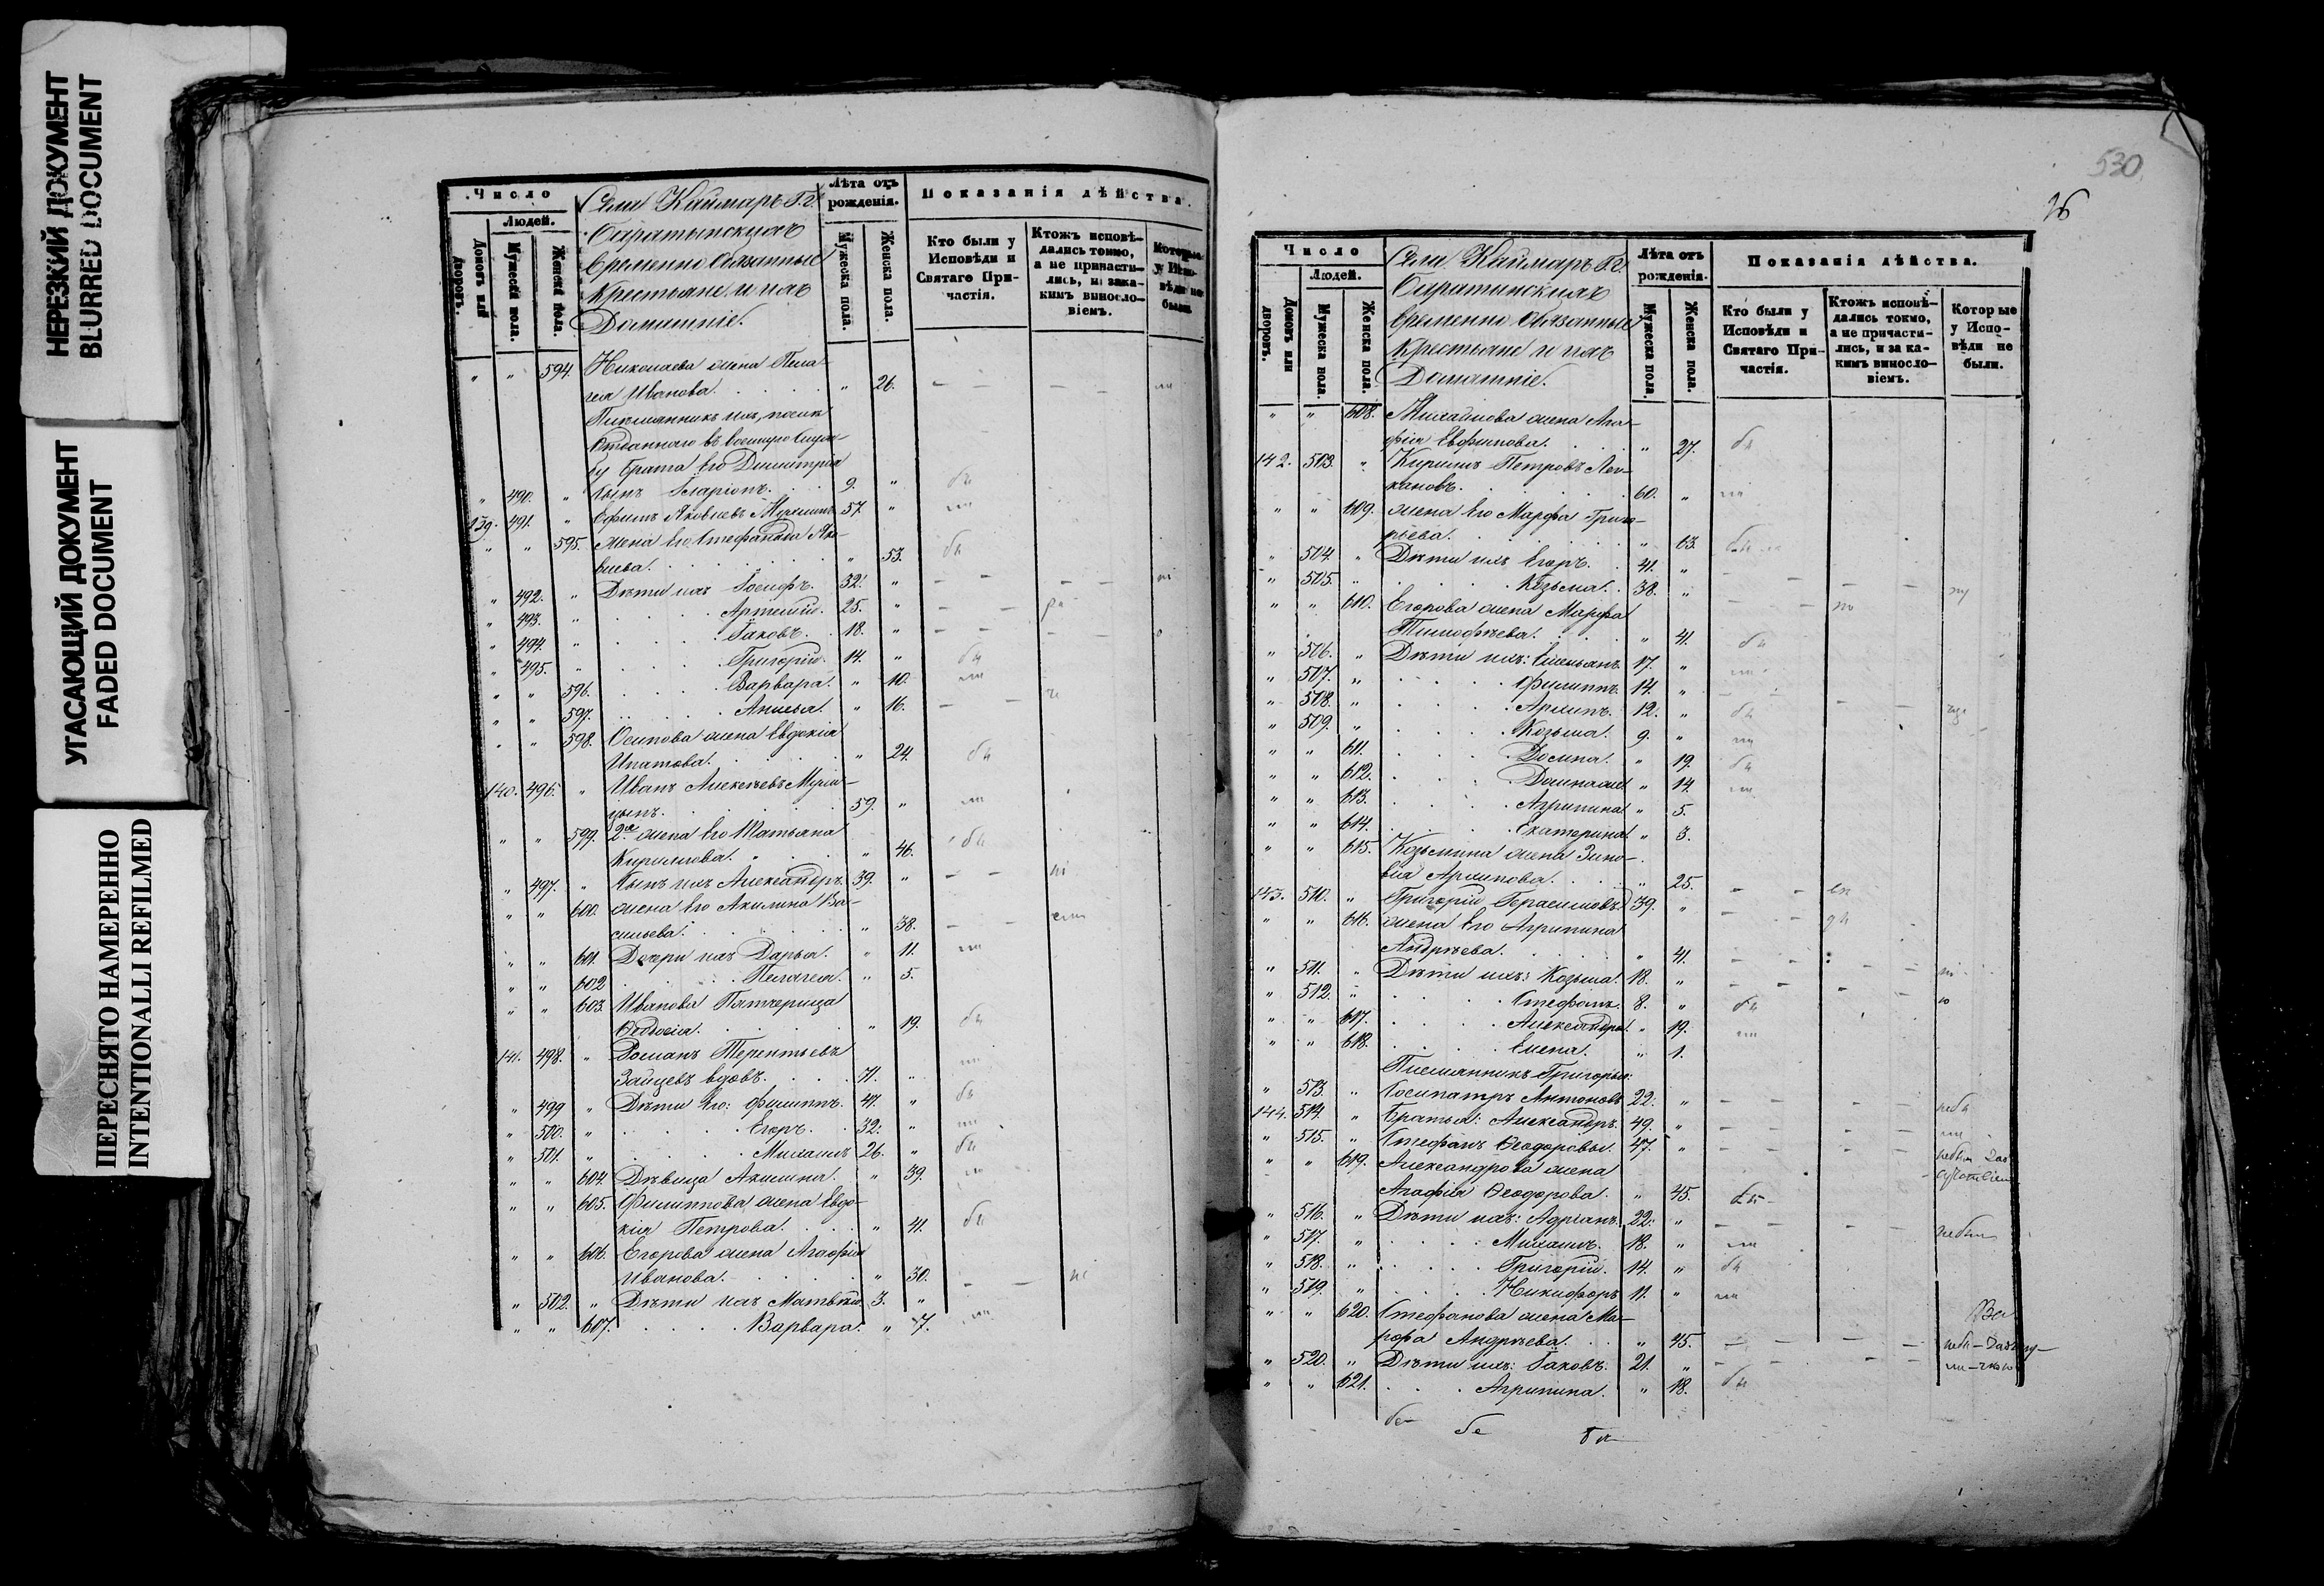 НЕРЕЗКИЙ ДОКУМЕНТ
BLURRED DOCUMENT
УГАСАЮЩИЙ ДОКУМЕНТ
FADED DOCUMENT
ПЕРЕСНЯТО НАМЕРЕННО
INTENTIONALLI REFILMED
Число
Людей.
Домовъ или дворовъ.
Мужеска пола.
Женска пола.
Села Каймаръ Г.г.
Баратынскихъ
временно обязанные
крестьяне и ихъ
домашніе.
Лѣта отъ рожденія.
Мужеска пола.
Женска пола.
Показанія дѣйства.
Кто были у Исповѣди и Святаго Причастія.
Ктожъ исповѣдались токмо, а не причастились, и за какимъ винословіемъ.
Которые у Исповѣди не были.
" " 594. Николаева жена Пела-
гея Иванова. " 26.
Племянникъ ихъ,
отданнаго въ военную служ-
бу брата его Димитрія
" 490. " сынъ Іларіонъ. 9. "
139. 491. " Ефимъ Яковлевъ 57. "
" " 595. жена его Стефанида Яко-
влева. " 53.
" 492. " Дѣти ихъ Іосифъ. 32. "
" 493. " Артемій. 25. "
" 494. " Іаковъ. 18. "
" 495. " Григорій. 14. "
" " 596. Варвара. " 10.
" " 597. Анисья. " 16.
" " 598. Осипова жена Евдокія
Ипатова. " 24.
140. 496. " Иванъ Алексѣевъ
59. "
" " 599. 2я жена его Татьяна
Кирилова. " 46.
" 497. " Сынъ ихъ Александръ. 39. "
" " 600. жена его Акилина Ва-
сильева. " 38.
" " 601. Дочери ихъ Дарья. " 11.
" " 602 Пелагея. " 5.
" " 603. Иванова Патчерица
Ѳедосія. " 19.
141. 498. " Романъ Терентьевъ
Зайцевъ вдовъ. 71. "
" 499 " Дѣти его: Филиппъ. 47. "
" 500. " Егоръ. 32. "
" 501. " Михаилъ 26. "
" " 604. Дѣвица Акилина. " 39.
" " 605. Филиппова жена Евдо-
кія Петрова. " 41.
" " 606. Егорова жена Агафія
Иванова. " 30.
" 502. " Дѣти ихъ Матвѣй. 3. "
" " 607. Варвара. " 7.
530.
Число
Людей.
Домовъ или дворовъ.
Мужеска пола.
Женска пола.
Села Каймаръ Г.г.
Баратынскихъ
временно обязанные
крестьяне и ихъ
Домашніе.
Лѣта отъ рожденія.
Мужеска пола.
Женска пола.
Показанія дѣйства.
Кто были у Исповѣди и Святаго Причастія.
Ктожъ исповѣдались токмо, а не причастились, и за какимъ винословіемъ.
Которые у Исповѣди не были.
" " 608. Михайлова жена Ага-
фія Евфимова. " 27.
142. 503. " Кирилъ Петровъ
60. "
" " 609. жена его Марфа Григо-
рьева. " 63.
" 504. " Дѣти ихъ Егоръ. 41. "
" 505. " Козьма. 38. "
" " 610. Егорова жена Марфа
Тимофѣева. " 41.
" 506. " Дѣти ихъ: Емельянъ. 17. "
" 507. " Филиппъ. 14. "
" 508. " Архипъ. 12. "
" 509. " Козьма. 9. "
" " 611. Домна. " 19.
" " 612. " 14.
" " 613. Агрипина. " 5.
" " 614. Екатерина. " 3.
" " 615. Козьмина жена Зино-
вія Архипова. " 25.
143. 510. " Григорій Герасимовъ. 39. "
" " 616. жена его Агрипина
Андрѣева. " 41.
" 511. " Дѣти ихъ: Козьма. 18. "
" 512. " Стефанъ. 8. "
" " 617. Александра. " 19.
" " 618. Елена. " 1.
Племянникъ Григорья:
" 513. " Сосипатръ Антоновъ 22. "
144. 514. " Братья: Александръ. 49. "
" 515. " Стефанъ Ѳеодоровы. 47. "
" " 619. Александрова жена
Агафія Ѳеодорова. " 45.
" 516. " Дѣти ихъ: Адріанъ. 22. "
" 517. " Михаилъ. 18. "
" 518. " Григорій. 14. "
" 519. " Никифоръ 11. "
" " 620. Стефанова жена Ма-
рфа Андрѣева. " 45.
" 520. " Дѣти ихъ: Іаковъ. 21. "
" " 621. Агрипина. " 18.